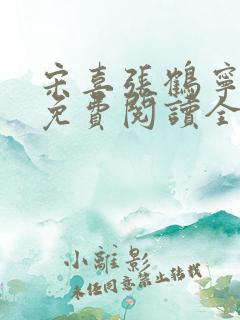 宋喜張鶴寧
免費閱讀全
小離影
未经同意禁止转载